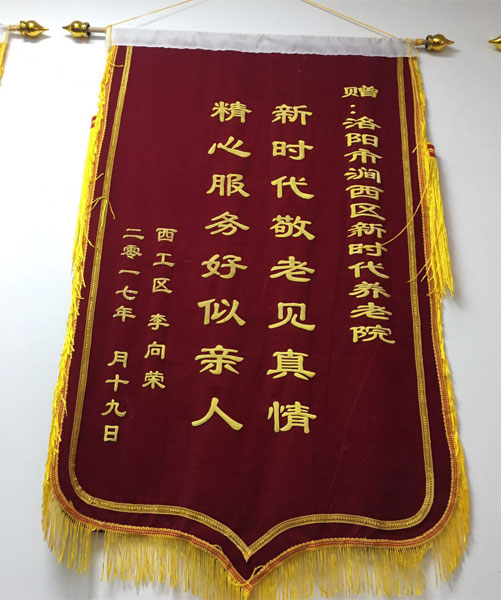 赠：洛阳市涧西区新时代养老院
新时代敬老见真情
精心服务好似亲人
西工区 李向荣
二零一七年 月十九日